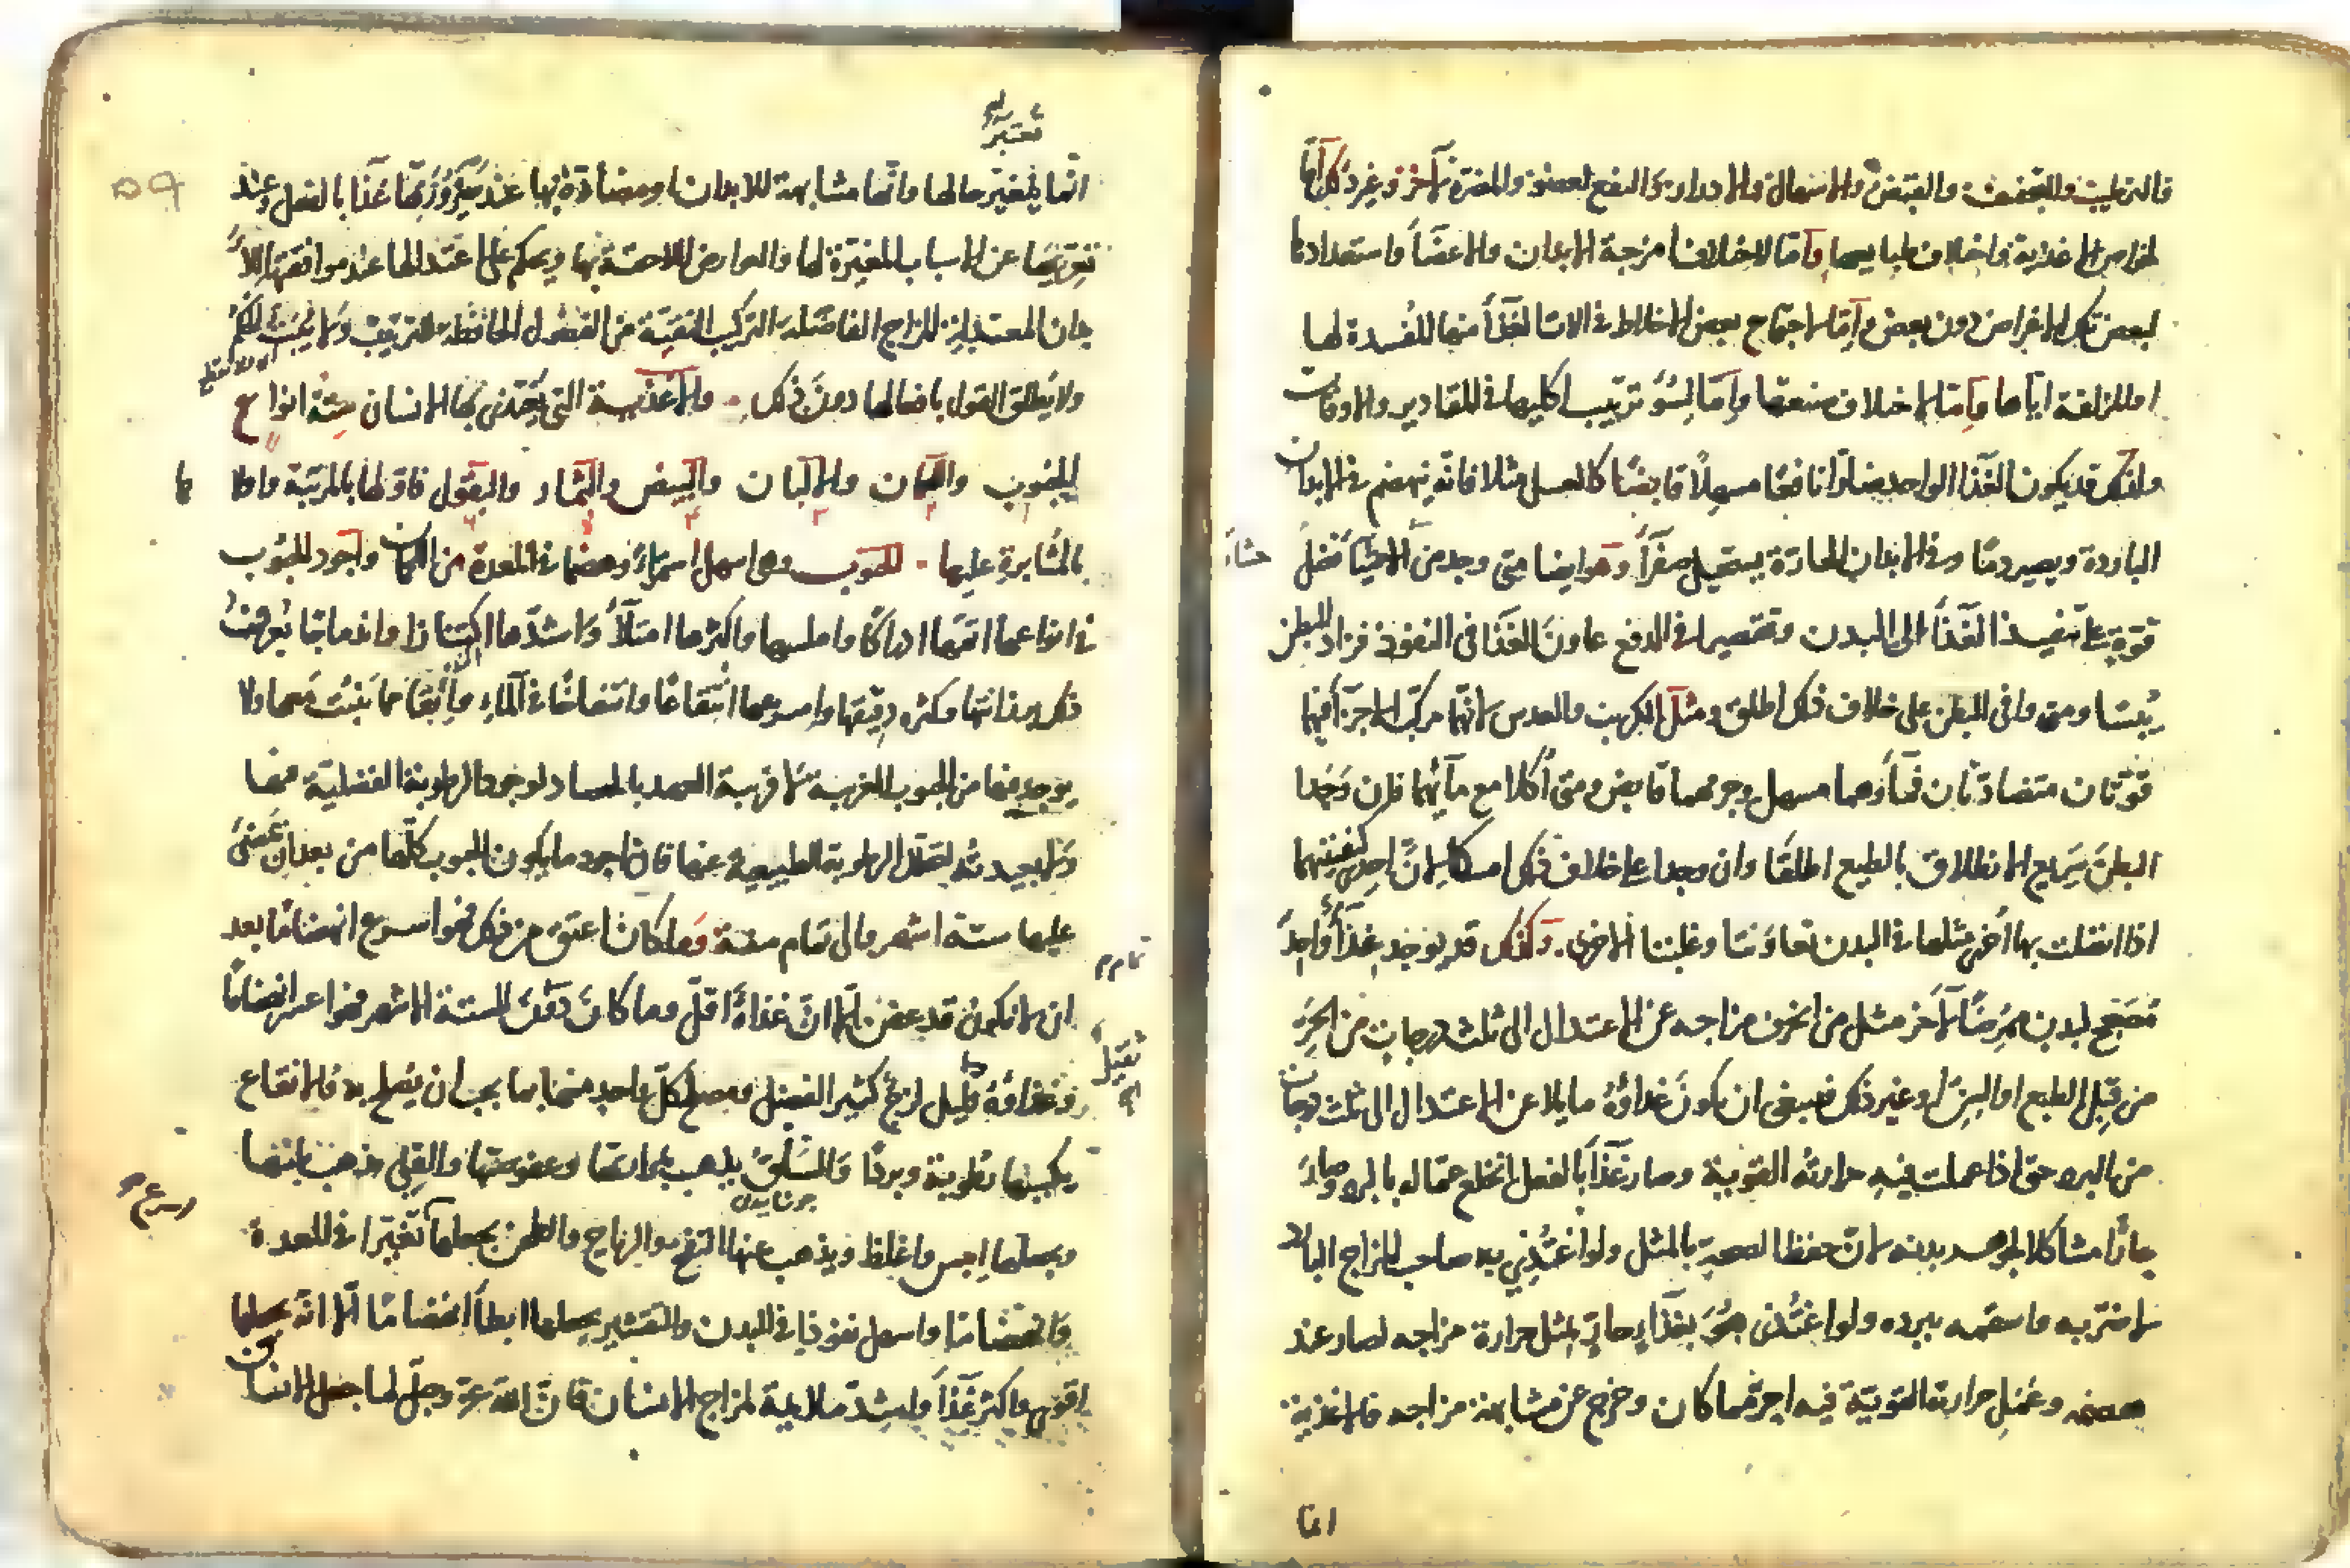 فالترطيب والتجفيف والقبض والاسهال والادرار والنفع لعضو والمضرة لآخر وغير ذلك اما
لخواص الاغذية واختلاف طبايعها واما لاختلاف امزجة الابدان والاعضاء واستعدادها
لبعض تلك الاغراض دون بعض واما لاجتماع بعض الاخلاط في الات الغذاء منها المفسدة لها
او المزلقة اياها واما لاختلاف صنعتها واما لسوء ترتيب اكلها في المقادير والاوقات
ولذلك قد يكون الغذا الواحد ضارا نافعا مسهلا قابضا كالعسل مثلا فانه ينهضم في الابدان
الباردة ويصير دما وفي الابدان الحارة يستحيل صفرآء وهو ايضا متى وجد من الاحشاء فضل
حشاء
قوة على تنفيذ الغذآء الى البدن وتقصيرا في الدفع عاون الغذا في النفوذ فزاد البطن
يبسا ومتى وافى البطن على خلاف ذلك اطلق ومثل الكرنب والعدس لانهما مركبا اجزآء فيها
قوتان متضادتان فمآؤهما مسهل وجرمهما قابض ومتى أكلا مع مآئهما فان وجدا
البطن سريع الانطلاق بالطبع اطلقا وان وجدا على خلاف ذلك امسكا لان احدى كيفيتهما
اذا اتصلت بها اخرى مثلها في البدن تعاونتا وغلبتا الاخرى. وكذلك قد يوجد غذآء واحدا
مصححا لبدن ممرضا لآخر مثل من انحرف مزاجه عن الاعتدال الى ثلث درجات من الحر
من قبل الطبع او السن او غير ذلك فينبغى ان يكون غذاؤه مايلا عن الاعتدال الى ثلث درجات
من البرد حتى اذا عملت فيه حرارته القوية وصار غذآء بالفعل انخلع عما له بالبرد وصار
حارا مشاكلا لجوهر بدنه لان حفظ الصحة بالمثل ولو اغتذى به صاحب المزاج البارد
لاضر به واسقمه ببرده ولو اغتذى هو بغذآء حار مثل حرارة مزاجه لصار عند
هضمه وعمل حرارته القوية فيه احر مما كان وخرج عن مشابهة مزاجه فالاغذية
انما
تعتبر
انما يتغير حالها وانها مشابهة للابدان او مضادة لها عند كونها غذا بالفعل وعند
تعريها عن الاسباب المغيرة لها والعوارض اللاحقة بها ويحكم على اعتدالها عند موافقتها الا
بدان المعتدلة المزاج الفاضلة التركيب النقية من الفضول الحافظة للترتيب ولا يجب الحكم
ولا يطلق القول بافعالها دون ذلك. والاغذية التي يغتذى بها الانسان ستة انواع
الحبوب واللحمان والالبان والبيض والثمار والبقول فاولها بالمرتبة واولا ها
بالمثابرة عليها - الحبوب وهى اسهل استمراء وهضما في المعدة من اللحمان واجود الحبوب
في انواعها اتمها ادراكا واملسها واكثرها امتلآء واشدها اكتنازا واندماجا يعرف
ذلك برزانتها وكثرة دقيقها واسرعها انتقاعا وانتفاخا في المآء وانقاها مما ينبت معها ولا
يوجد فيها من الحبوب الغريبة لا قريبة العهد بالحصاد لوجود الرطوبة الفضلية فيها
ولا بعيدته لتحلل الرطوبة الطبيعية عنها فان اجود ما يكون الحبوب كلها من بعد ان تمضى
عليها ستة اشهر والى تمام سنة وما كان اعتق من ذلك فهو اسرع انهضاما بعد
ان لا تكون قد عفن الا ان غذاءه اقل وما كان دون الستة الاشهر فهو اعسر انهضاما
وغذاؤه قليل لزج كثير الفضل ومصلح كل واحد منها بما يجب ان يصلح به فالانقاع
يكسبها رطوبة وبردا والسلق يذهب بحرارتها وعفوصتها والقلى يذهب بنفخها
ويجعلها ايبس واغلظ ويذهب عنها النفخ والرياح والطحن يجعلها اسرع تغيرا في المعدة
وانهضاما واسهل نفوذا في البدن والتقشير يجعلها ابطأ انهضاما الا انه يجعلها
اقوى واكثر غذآء واشد ملايمة لمزاج الانسان فان الله عز وجل لما جعل الانسان